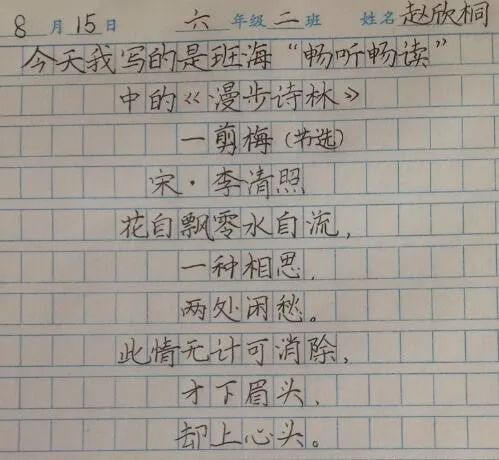 8月15日 六年级二班 姓名赵欣桐
今天我写的是班海“畅听畅读”
中的《漫步诗林》
一剪梅(节选)
宋·李清照
花自飘零水自流,
一种相思,
两处闲愁。
此情无计可消除,
才下眉头,
却上心头。